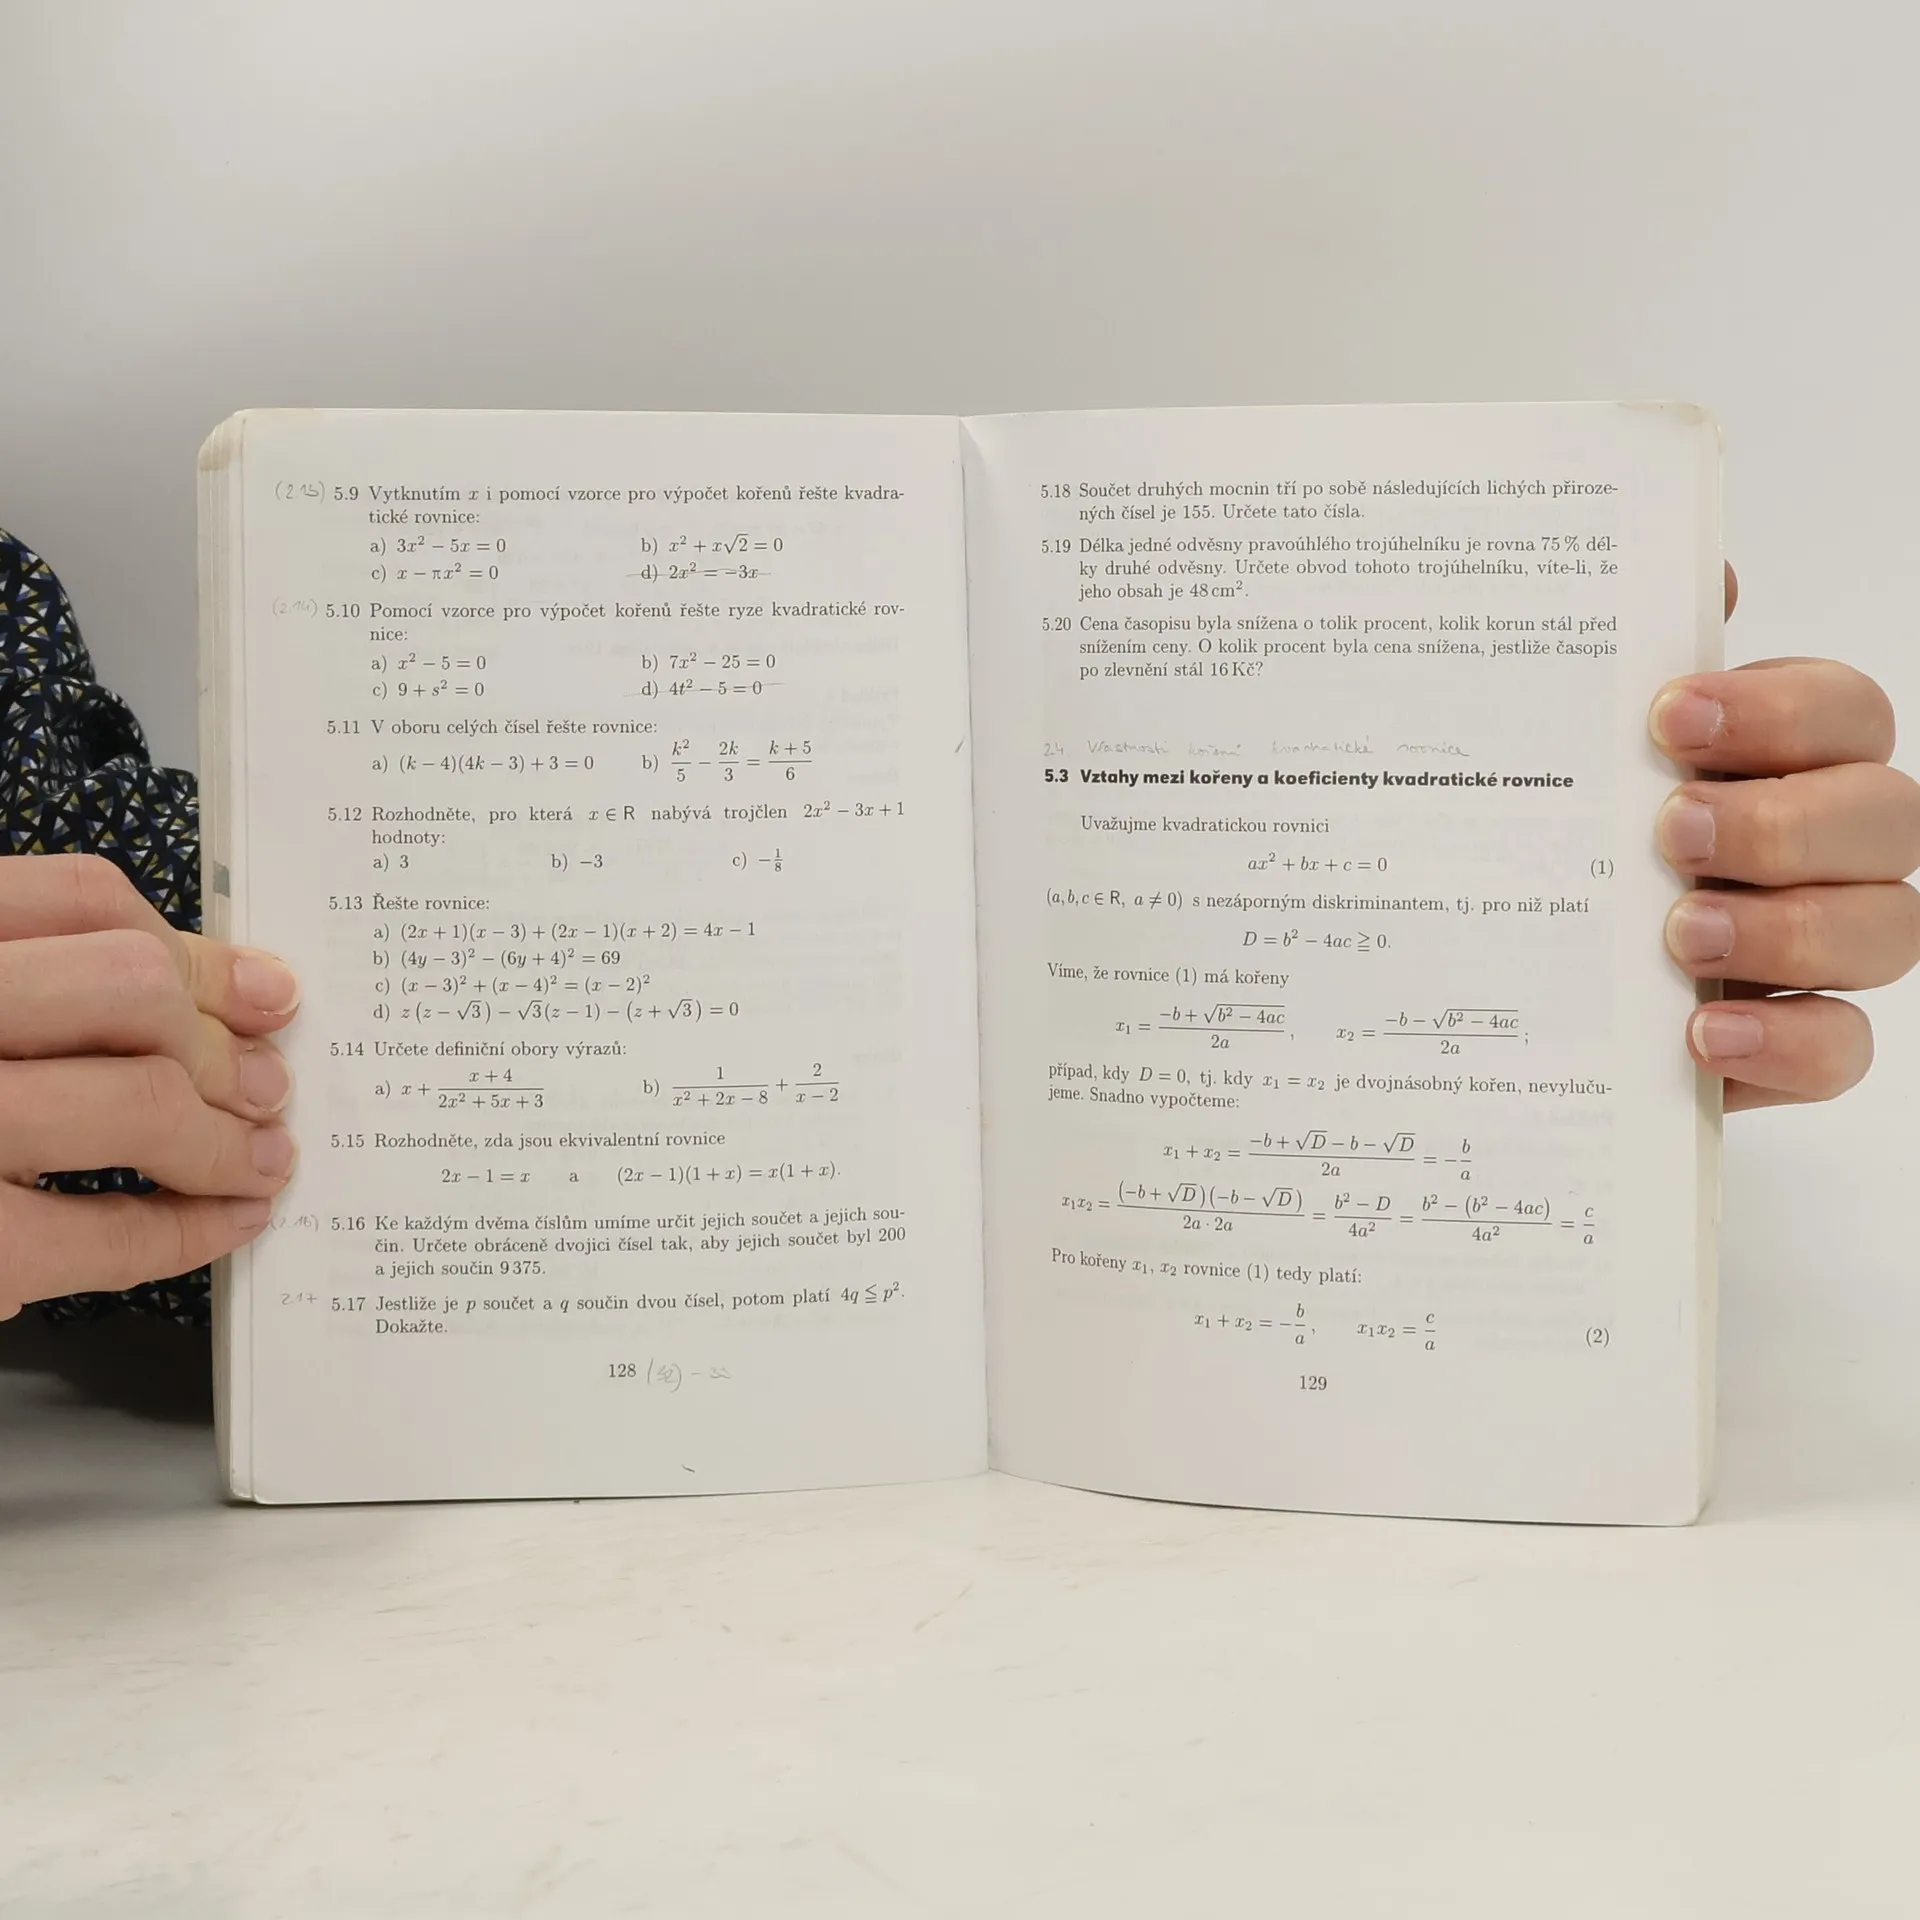 (2.13) 5.9 Vytknutím x i pomocí vzorce pro výpočet kořenů řešte kvadra-
tické rovnice:
a) 3x² − 5x = 0 b) x² + x√2 = 0
c) x − πx² = 0 d) 2x² = −3x
(2.14) 5.10 Pomocí vzorce pro výpočet kořenů řešte ryze kvadratické rov-
nice:
a) x² − 5 = 0 b) 7x² − 25 = 0
c) 9 + s² = 0 d) 4t² − 5 = 0
5.11 V oboru celých čísel řešte rovnice:
a) (k − 4)(4k − 3) + 3 = 0 b) k²/5 − 2k/3 = (k + 5)/6
5.12 Rozhodněte, pro která x ∈ R nabývá trojčlen 2x² − 3x + 1
hodnoty:
a) 3 b) −3 c) −1/8
5.13 Řešte rovnice:
a) (2x + 1)(x − 3) + (2x − 1)(x + 2) = 4x − 1
b) (4y − 3)² − (6y + 4)² = 69
c) (x − 3)² + (x − 4)² = (x − 2)²
d) z (z − √3) − √3(z − 1) − (z + √3) = 0
5.14 Určete definiční obory výrazů:
a) x + (x + 4)/(2x² + 5x + 3) b) 1/(x² + 2x − 8) + 2/(x − 2)
5.15 Rozhodněte, zda jsou ekvivalentní rovnice
2x − 1 = x a (2x − 1)(1 + x) = x(1 + x).
(2.16) 5.16 Ke každým dvěma číslům umíme určit jejich součet a jejich sou-
čin. Určete obráceně dvojici čísel tak, aby jejich součet byl 200
a jejich součin 9 375.
2.17 5.17 Jestliže je p součet a q součin dvou čísel, potom platí 4q ≦ p².
Dokažte.
128
5.18 Součet druhých mocnin tří po sobě následujících lichých přiroze-
ných čísel je 155. Určete tato čísla.
5.19 Délka jedné odvěsny pravoúhlého trojúhelníku je rovna 75 % dél-
ky druhé odvěsny. Určete obvod tohoto trojúhelníku, víte-li, že
jeho obsah je 48 cm².
5.20 Cena časopisu byla snížena o tolik procent, kolik korun stál před
snížením ceny. O kolik procent byla cena snížena, jestliže časopis
po zlevnění stál 16 Kč?
2.4 Vlastnosti kořenů kvadratické rovnice
5.3 Vztahy mezi kořeny a koeficienty kvadratické rovnice
Uvažujme kvadratickou rovnici
ax² + bx + c = 0 (1)
(a, b, c ∈ R, a ≠ 0) s nezáporným diskriminantem, tj. pro niž platí
D = b² − 4ac ≧ 0.
Víme, že rovnice (1) má kořeny
x₁ = (−b + √(b² − 4ac))/2a , x₂ = (−b − √(b² − 4ac))/2a ;
případ, kdy D = 0, tj. kdy x₁ = x₂ je dvojnásobný kořen, nevyluču-
jeme. Snadno vypočteme:
x₁ + x₂ = (−b + √D − b − √D)/2a = −b/a
x₁x₂ = (−b + √D)(−b − √D)/(2a · 2a) = (b² − D)/4a² = (b² − (b² − 4ac))/4a² = c/a
Pro kořeny x₁, x₂ rovnice (1) tedy platí:
x₁ + x₂ = −b/a , x₁x₂ = c/a (2)
129